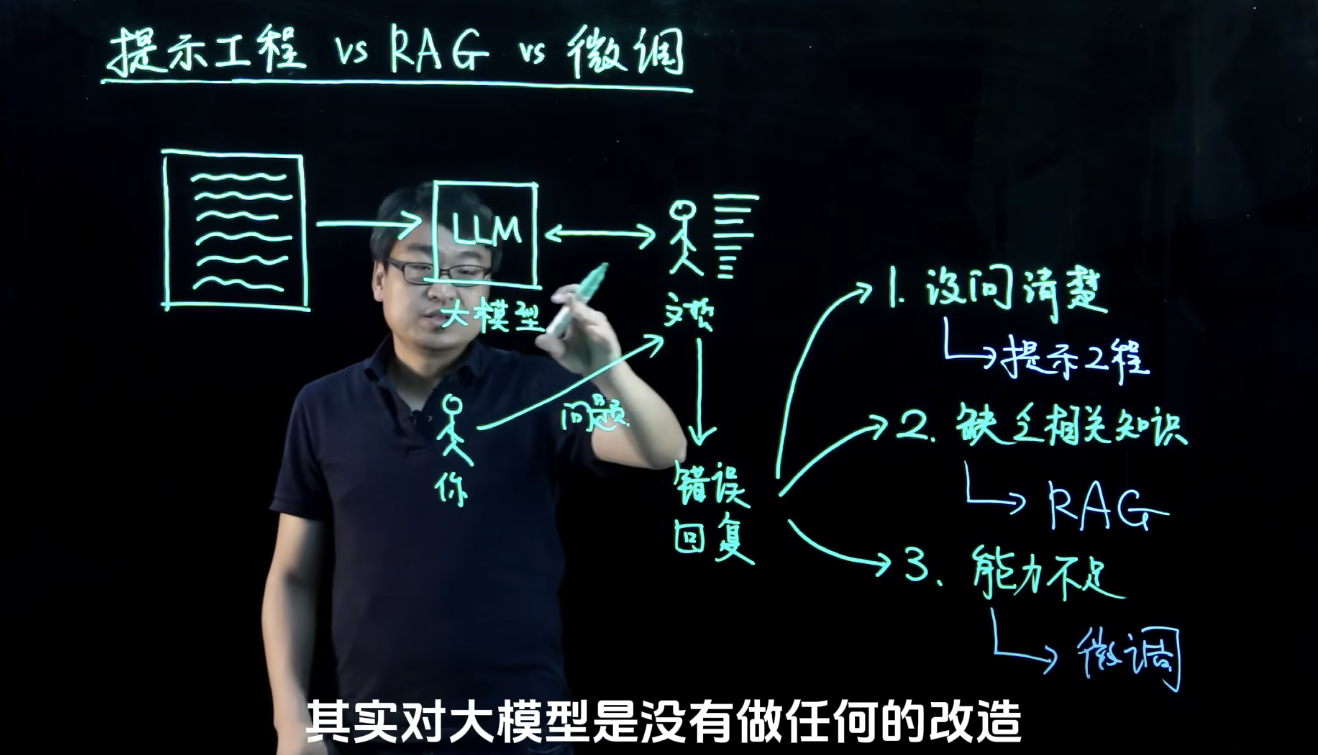 提示工程 vs RAG vs 微调
LLM
大模型
文哲
问题
你
错误
回复
1. 没问清楚
提示工程
2. 缺乏相关知识
RAG
3. 能力不足
微调
其实对大模型是没有做任何的改造